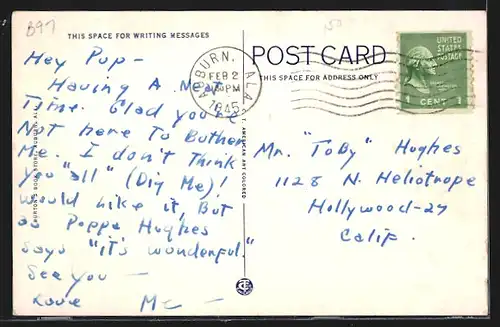 B97
50
THIS SPACE FOR WRITING MESSAGES
Hey Pup -
Having A Neat
Time. Glad you're
Not here To Buther
Me. I don't Think
you "all" (Dig Me)!
would like it, But
as Poppa Hughes
says "it's wonderful."
See you -
Love Me -
BURTON'S BOOK STORE, AUBURN, ALA.
AMERICAN ART COLORED
AUBURN, ALA.
FEB 2
PM
1945
POST CARD
THIS SPACE FOR ADDRESS ONLY
UNITED
STATES
POSTAGE
1 CENT 1
Mr. "ToBy" Hughes
1128 N. Heliotrope
Hollywood-27
Calif.